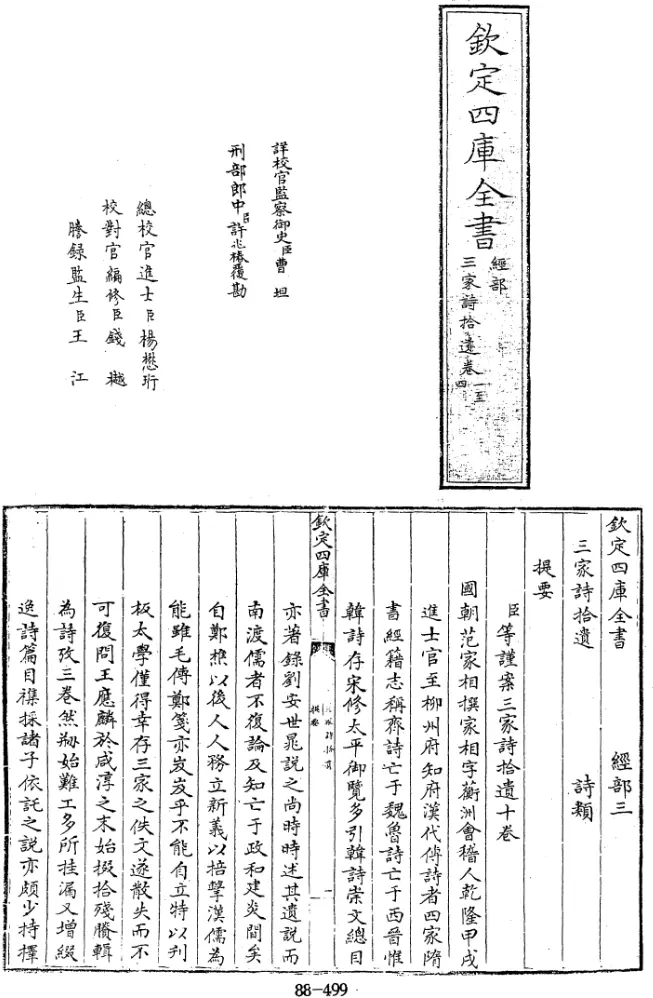 欽定四庫全書
經部
三家詩拾遺卷一至四
詳校官監察御史臣曹坦
刑部郎中臣許兆椿覆勘
總校官進士臣楊懋珩
校對官編修臣錢樾
謄錄監生臣王江
欽定四庫全書 經部三
三家詩拾遺 詩類
提要
臣等謹案三家詩拾遺十卷
國朝范家相撰家相字蘅洲會稽人乾隆甲戌
進士官至柳州府知府漢代傳詩者四家隋
書經籍志稱齊詩亡于魏魯詩亡于西晉惟
韓詩存宋修太平御覽多引韓詩崇文總目
欽定四庫全書
三家詩拾遺
提要
一
亦著錄劉安世晁說之尚時時述其遺說而
南渡儒者不復論及知亡于政和建炎間矣
自鄭樵以後人人務立新義以掊擊漢儒為
能雖毛傳鄭箋亦岌岌乎不能自立特以刋
板太學僅得幸存三家之佚文遂散失而不
可復問王應麟於咸淳之末始掇拾殘賸輯
為詩攷三卷然剏始難工多所挂漏又增綴
逸詩篇目襍採諸子依託之說亦頗少持擇
88-499